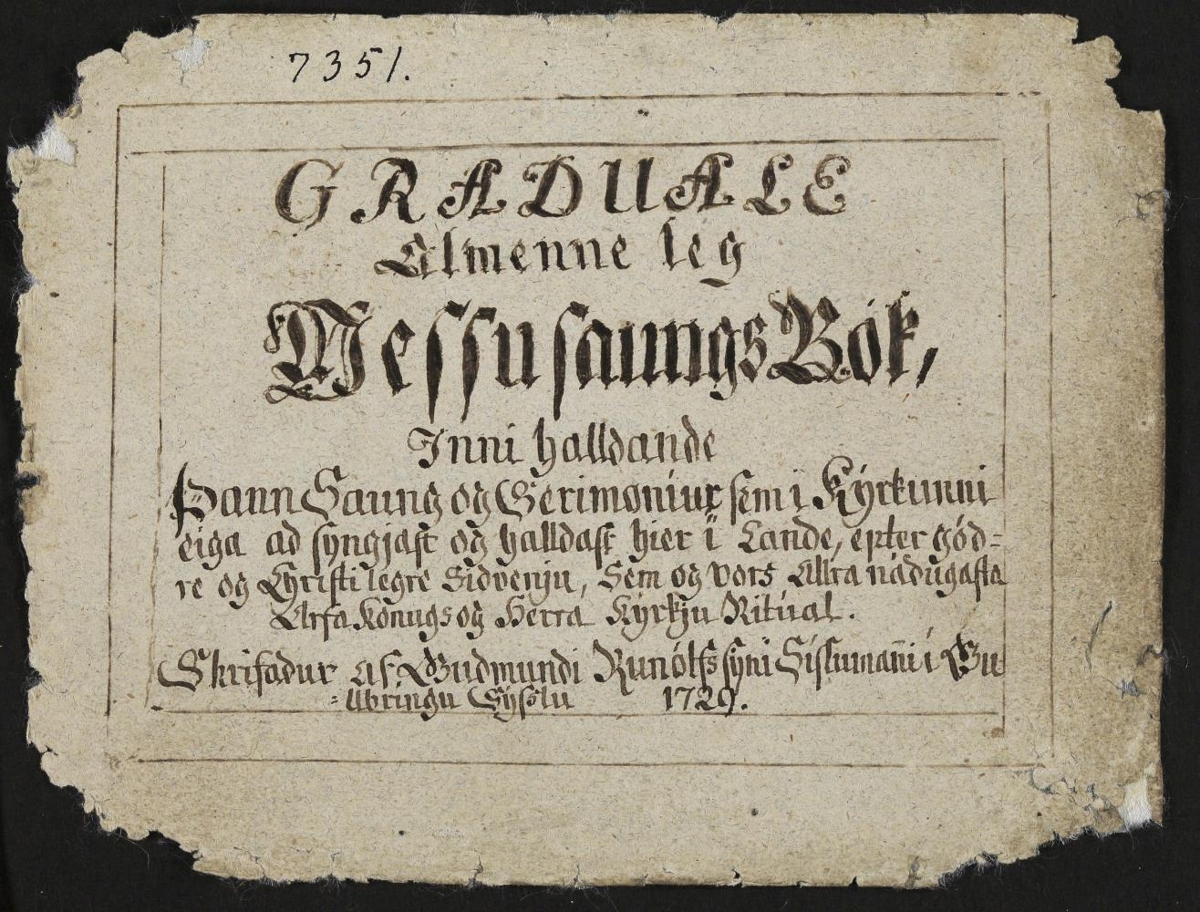 7351.
GRADUALE
Almenne leg
Messu saungs Bók,
Inni halldande
Þann Saung og Serimoniur sem i Kyrkunni
eiga ad syngjast og halldast hier i Lande, epter gód=
re og Christi legre Sidvenju, Sem og vors Allra nádugasta
Arfa Konugs og Herra Kyrkju Ritúal.
Skrifadur af Gudmundi Runólfs syni Sislumañi i Gu
=llbringu Syslu 1729.